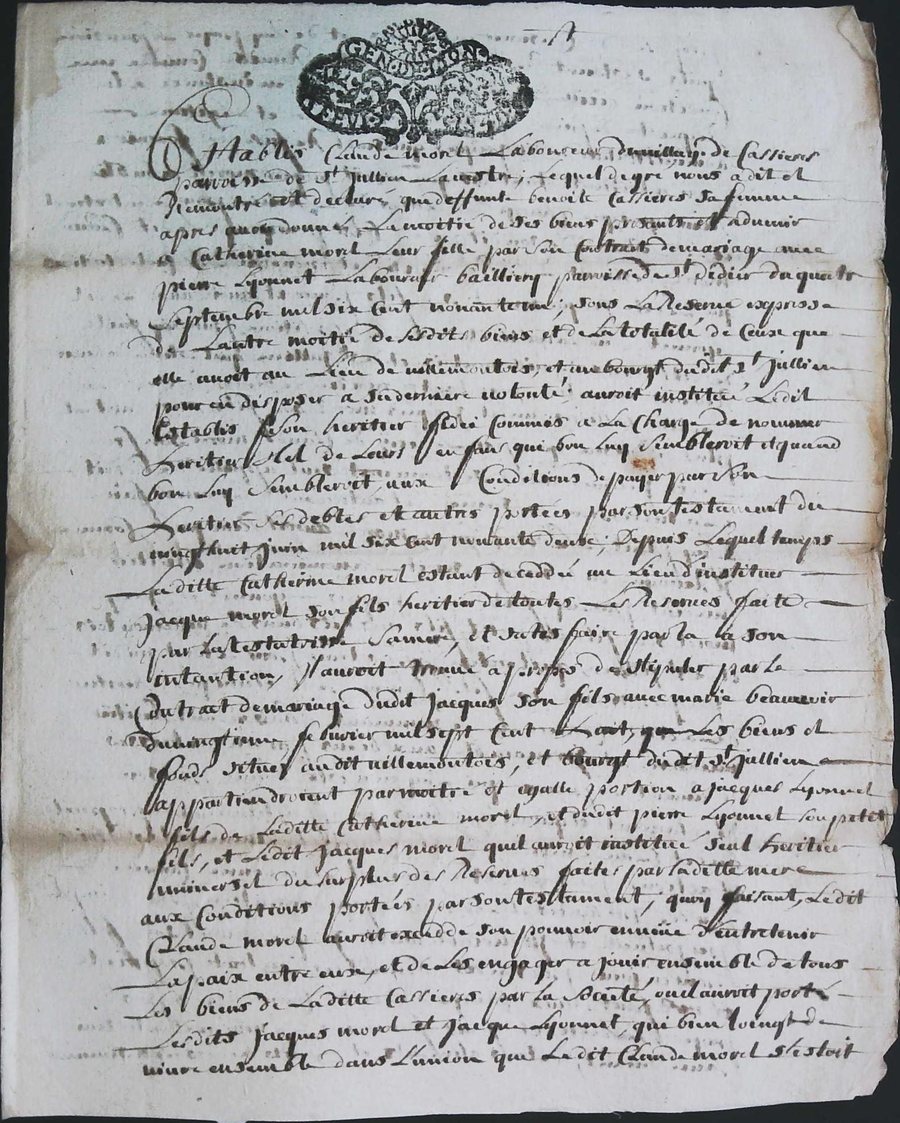 GEN DE LYON
Establis Claude morel Laboureur du village de Cassieres
parroisse de St Jullien La vestre, Lequel de gré nous a dit et
Remontré et declaré, que deffunte benoite Cassieres sa femme
apres avoir donné, La moitié de ses biens presants et advenir
a Catherine morel Leur fille par son Contrait de mariage avec
pierre Lyonnet Laboureur parroisse de St didier du quatre
Septembre mil six Cent nonante un, sous La Reserve expresse
de Lautre moitié de sesdits biens et de La totalité de Ceux que
elle avoit au Lieu de villemontois, et au bourgt dudit St Jullien
pour en disposer a sa derniere volonté auroit institué Ledit
Establis son heritier fidei Commis a La Charge de nommer
heritier tel de Leurs enfans que bon Luy Sembleroit et quand
bon Luy Sembleroit aux Conditions de payer par son
heritier ses debtes et autres portées par son testament du
vingthuit juin mil six Cent nonante deux; Depuis Lequel temps
Laditte Catherine morel estant deceddée au Lieu d'instituer
Jacque morel son fils heritier de toutes Les Reserves faite
par La testatrice sa mere, et satisfaire par la a son
intantion, Il auroit trouvé a propos de stipuler par Le
Contract de mariage dudit Jacques son fils avec marie beauvoir
du vingt fevrier mil sept Cent huit, que Les biens et
fonds situés audit villemontois, et bourgt dudit St Jullien
appartiendroient par moitié et egalle portion a Jacques Lyonnet
fils de Laditte Catherine morel, et dudit pierre Lyonnet son petit
fils, et Ledit Jacques morel quil auroit institué seul heritier
universel du surplus des Reserves faites par Laditte mere
aux Conditions portées par son testament, quoy faisant, Ledit
Claude morel auroit excedde son pouvoir en vüe d'entretenir
La paix entre eux, et de Les engager a jouir ensemble de tous
Les biens de Laditte Cassieres par La Societé, ou il auroit porté
Lesdits Jacques morel et Jacque Lyonnet, qui bien loingt de
vivre ensemble dans L'union que Ledit Claude morel s'estoit